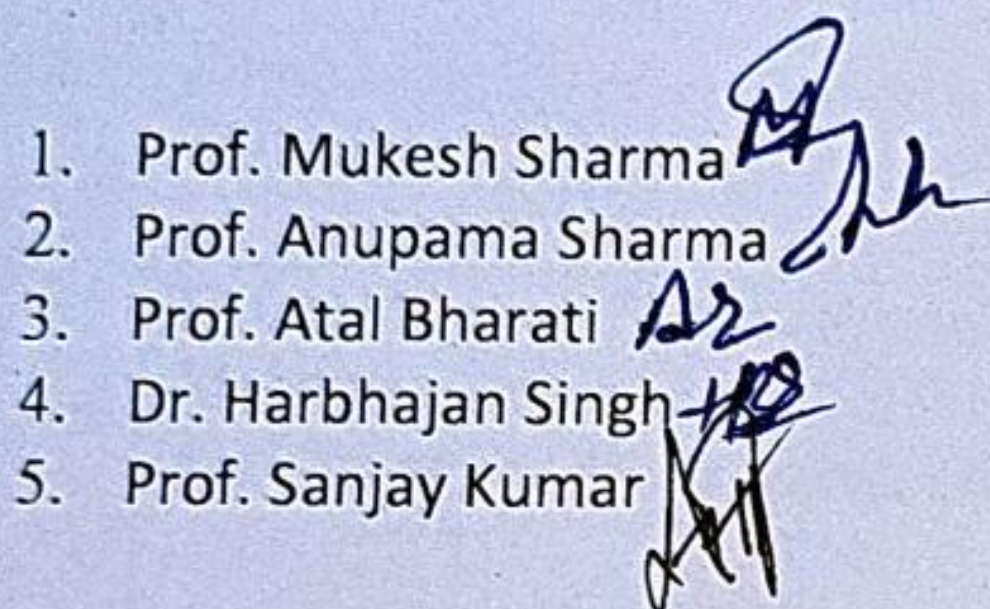 1. Prof. Mukesh Sharma
2. Prof. Anupama Sharma
3. Prof. Atal Bharati
4. Dr. Harbhajan Singh
5. Prof. Sanjay Kumar